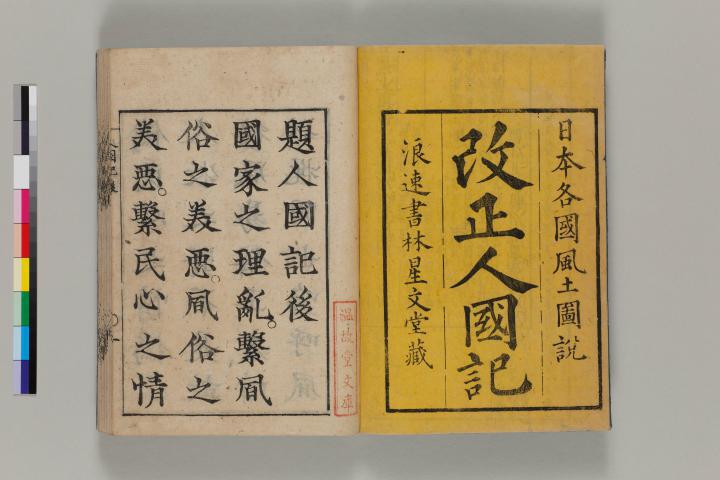 日本各國風土圖説
改正人國記
浪速書林星文堂藏
温故堂文庫
題人國記後
國家之理亂。繫凬
俗之美惡。凬俗之
美惡。繫民心之情